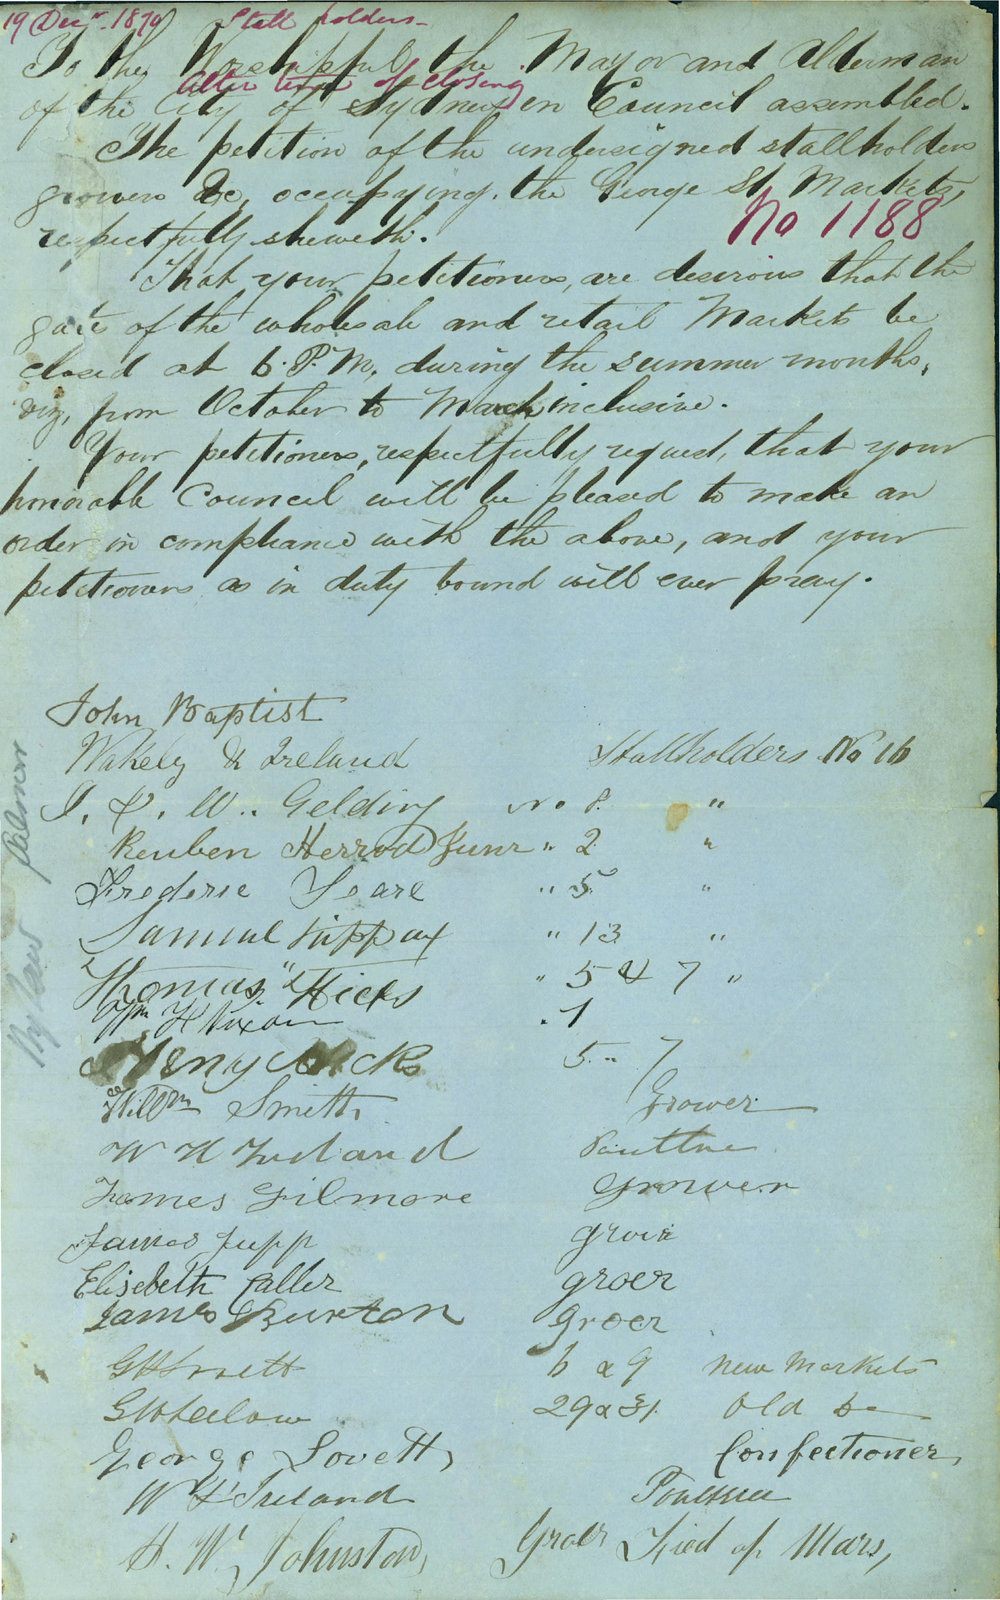 19 Decr. 1879 Stall holders
To the Worshipful the Mayor and Alderman
alter time of closing
of the City of Sydney in Council assembled.
The petition of the undersigned stallholders
growers &c, occupying the George St Markets,
respectfully sheweth.
No 1188
That your petitioners, are desirous that the
gate of the wholesale and retail Markets be
closed at 6. P.M, during the summer months,
viz, from October to March inclusive.
Your petitioners, respectfully request, that your
honorable Council will be pleased to make an
order in compliance with the above, and your
petitioners as in duty bound will ever pray.
John Baptist
Wakely & Ireland Stallholders No 16
J. & W. Gelding No 8 "
Reuben Herrod Junr " 2 "
Frederic Searl " 5 "
Samuel " 13 "
Thomas Hicks " 5 & 7 "
Wm H Nixon . 1
Henry Hicks 5 .. 7
Willm Smith Grower
W H Ireland
James Gilmore Grower
James Jupp
Elisebeth groer
James Burton groer
6 & 9 New Markets
29 & 31 Old Do
George Lovett Confectioner
W H Ireland
H. W. Johnston, Groer of Mars,
By Law